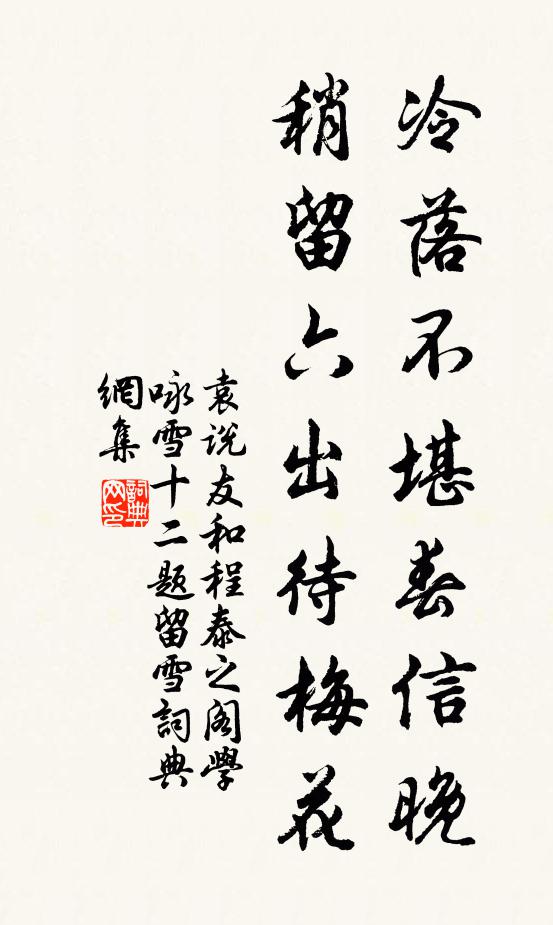 冷落不堪春信晚
稍留六出待梅花
袁说友和程泰之阁學
咏雪十二题留雪詞典
網集
詞典
网印